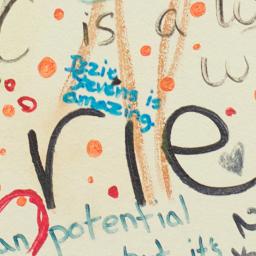 is a
Izzie
Stevens is
amazing.
rie
an potential
but it's